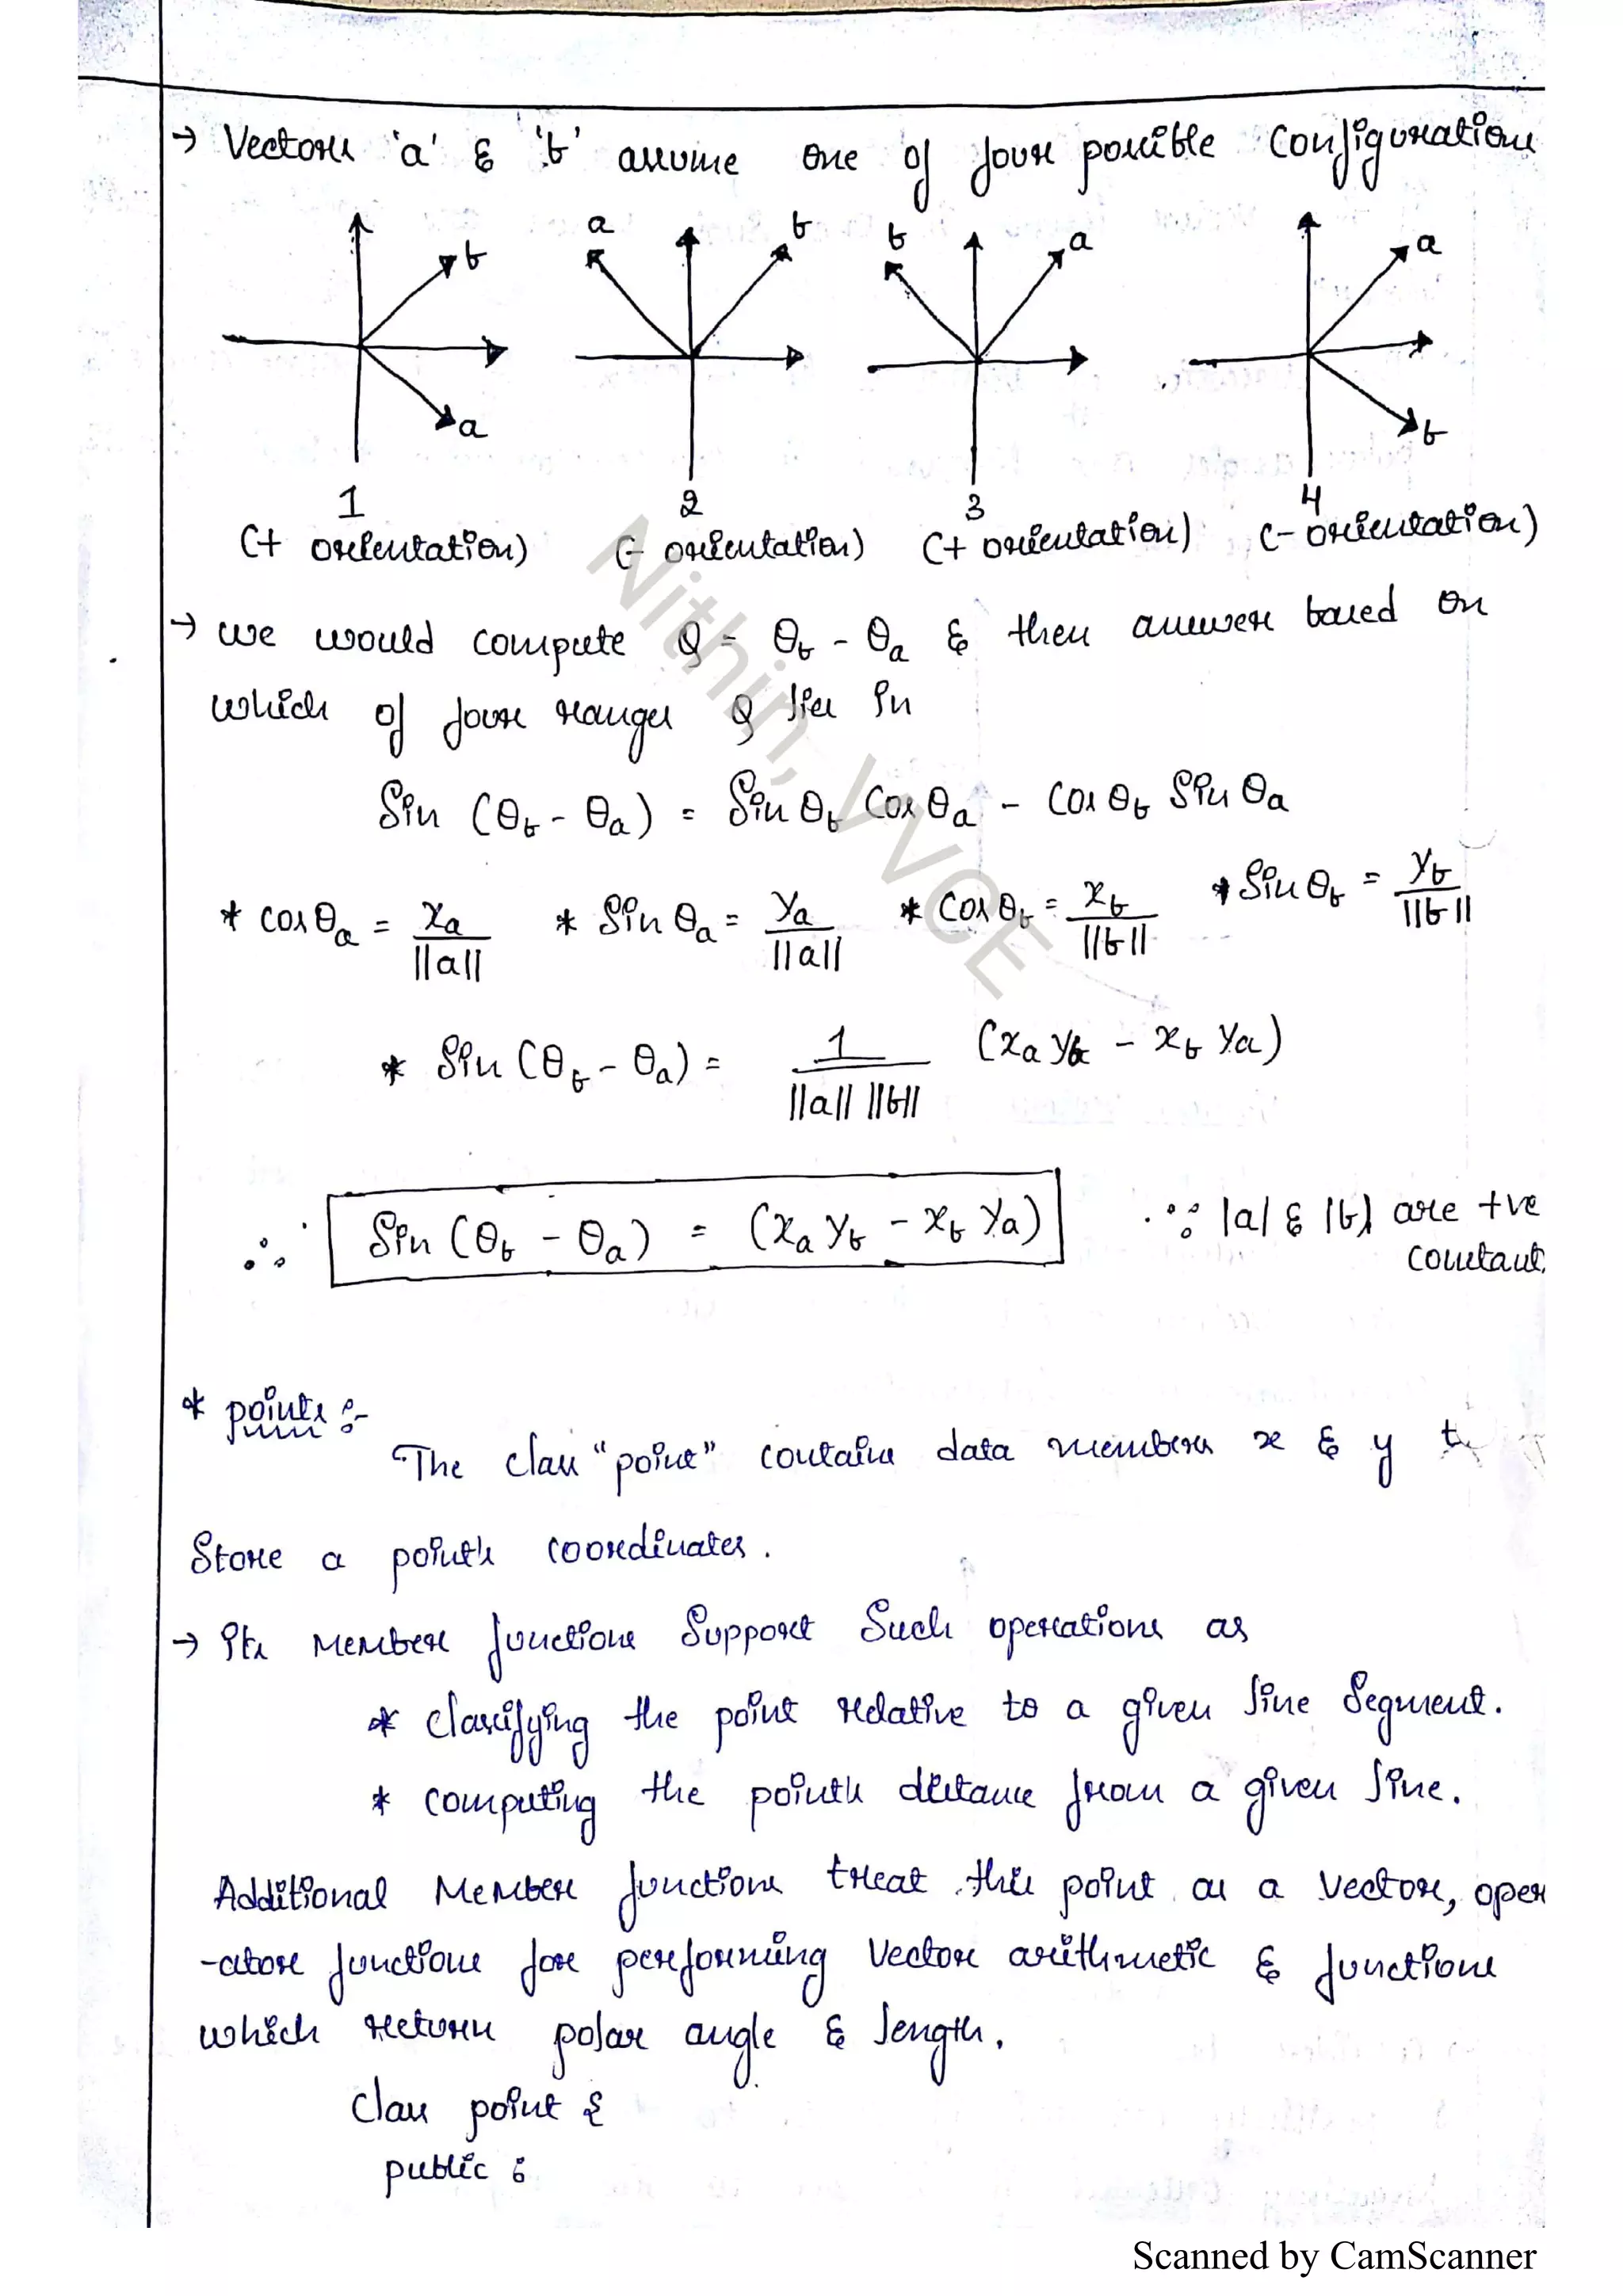 → Vectors 'a' & 'b' assume one of four possible configurations
b a b b a a
a b
1 2 3 4
(+ orientation) (- orientation) (+ orientation) (- orientation)
→ we would compute Q = θb - θa & then answer based on
which of four ranges Q lies in
Sin (θb - θa) = Sin θb Cos θa - Cos θb Sin θa
* cos θa = xa/||a|| * Sin θa = ya/||a|| * Cos θb = xb/||b|| * Sin θb = yb/||b||
* Sin (θb - θa) = 1/(||a|| ||b||) (xa yb - xb ya)
∴ Sin (θb - θa) = (xa yb - xb ya) ∵ |a| & |b| are +ve
constant.
* points :-
The class "point" contains data members x & y
Store a point's coordinates.
→ Its Member functions Support Such operations as
* classifying the point relative to a given line Segment.
* computing the point's distance from a given line.
Additional Member functions treat this point as a vector, oper
-ator functions for performing Vector arithmetic & functions
which return polar angle & length.
Class point {
public :
Nithin, VVCE
Scanned by CamScanner